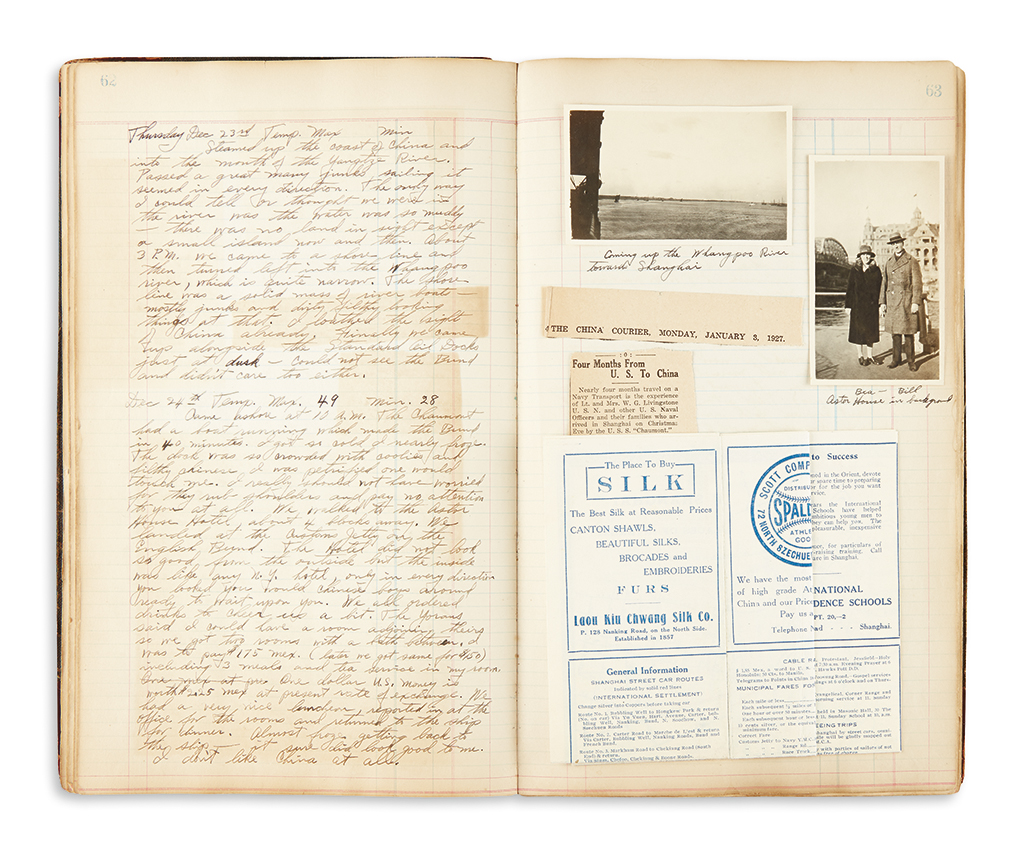 62
Thursday Dec 23rd Temp. Max Min
Steamed up the coast of China and
into the mouth of the Yangtze River.
Passed a great many junks sailing it
seemed in every direction. The only way
I could tell or thought we were in
the river was the water was so muddy
– there was no land in sight except
a small island now and then. About
3 P.M. we came to a shore line and
then turned left into the Whangpoo
river, which is quite narrow. The shore
line was a solid mass of river boats –
mostly junks and dirty filthy looking
things at that. I loathed the sight
of China already. Finally we came
up alongside the Standard Oil Docks
just at dusk – could not see the Bund
and didn't care too either.
Dec 24th Temp. Max. 49 Min. 28
Came ashore at 10 A.M. The Chaumont
had a boat running which made the Bund
in 40 minutes. I got so cold I nearly froze.
The dock was so crowded with coolies and
filthy chinese, I was petrified one would
touch me. I really should not have worried
for they rub shoulders and pay no attention
to you at all. We walked to the Astor
House Hotel, about 4 blocks away. We
landed at the Custom Jetty on the
English Bund. The Hotel did not look
so good from the outside but the inside
was like any N.Y. hotel, only in every direction
you looked you would chinese boys around
ready to wait upon you. We all ordered
drinks to cheer us a bit. The
said I could have a room adjoining theirs
so we got two rooms with a bath between.
was to pay $175 mex. (later we got same for $150)
including 3 meals and tea service in my room.
One dollar U.S. money is
worth $2.25 mex at present rate of exchange. We
had a very nice luncheon, reported in at the
office for the rooms and returned to the ship
for dinner. Almost froze getting back to
the ship – at sure did look good to me.
I don't like China at all.
63
Coming up the Whangpoo River
toward Shanghai
Bea – Bill
Astor House in background
THE CHINA COURIER, MONDAY, JANUARY 3, 1927.
:o:
Four Months From
U. S. To China
Nearly four months travel on a
Navy Transport is the experience
of Lt. and Mrs. W. G. Livingstone
U. S. N. and other U. S. Naval
Officers and their families who ar-
rived in Shanghai on Christmas
Eve by the U. S. S. "Chaumont."
The Place To Buy
SILK
The Best Silk at Reasonable Prices
CANTON SHAWLS,
BEAUTIFUL SILKS,
BROCADES and
EMBROIDERIES
FURS
Laou Kiu Chwang Silk Co.
P. 128 Nanking Road, on the North Side.
Established in 1857
SCOTT COMP
DISTRIBU
SPALD
ATHLE
GOO
72 NORTH SZECHUE
We have the most
of high grade At
China and our Pric
Pay us a
Telephone N
to Success
ed in the Orient, devote
r spare time to preparing
for the job you want
rvice.
ears the International
Schools have helped
mbitious young men to
hey can help you. The
pleasurable, inexpensive
nce, for particulars of
-raising training. Call
are in Shanghai.
NATIONAL
DENCE SCHOOLS
PT. 20,–2
ad - - - Shanghai.
General Information
SHANGHAI STREET CAR ROUTES
Indicated by solid red lines
(INTERNATIONAL SETTLEMENT)
Change Silver into Coppers before taking car
Route No. 1, Bubbling Well to Hongkew Park & return
Route No. 2, Carter Road to
Via Carter, Bubbling Well, Nanking Roads, Bund and
French Bund.
Route No. 3, Markham Road to Clechlong Road (South
end) & return
CABLE RA
MUNICIPAL FARES FO
EEING TRIPS